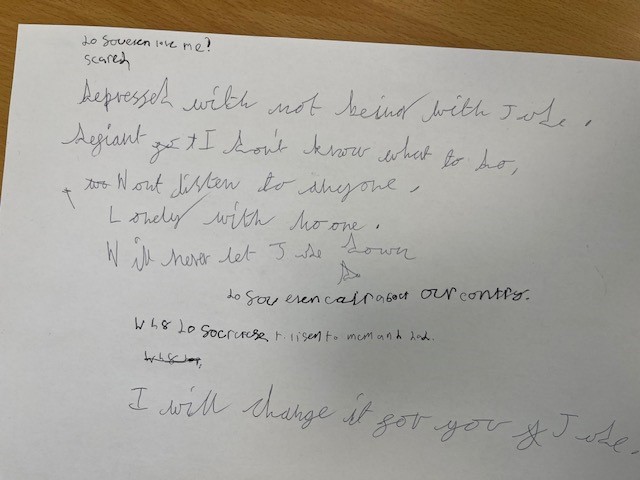 do you even love me?
scared
Depressed with not being with Jude.
Defiant I don't know what to do,
Wont listen to anyone,
Lonely with no one.
Will never let Jude down
do you even cair about our contry.
Why do you to lisen to mom and dad.
I will change it for you Jude.